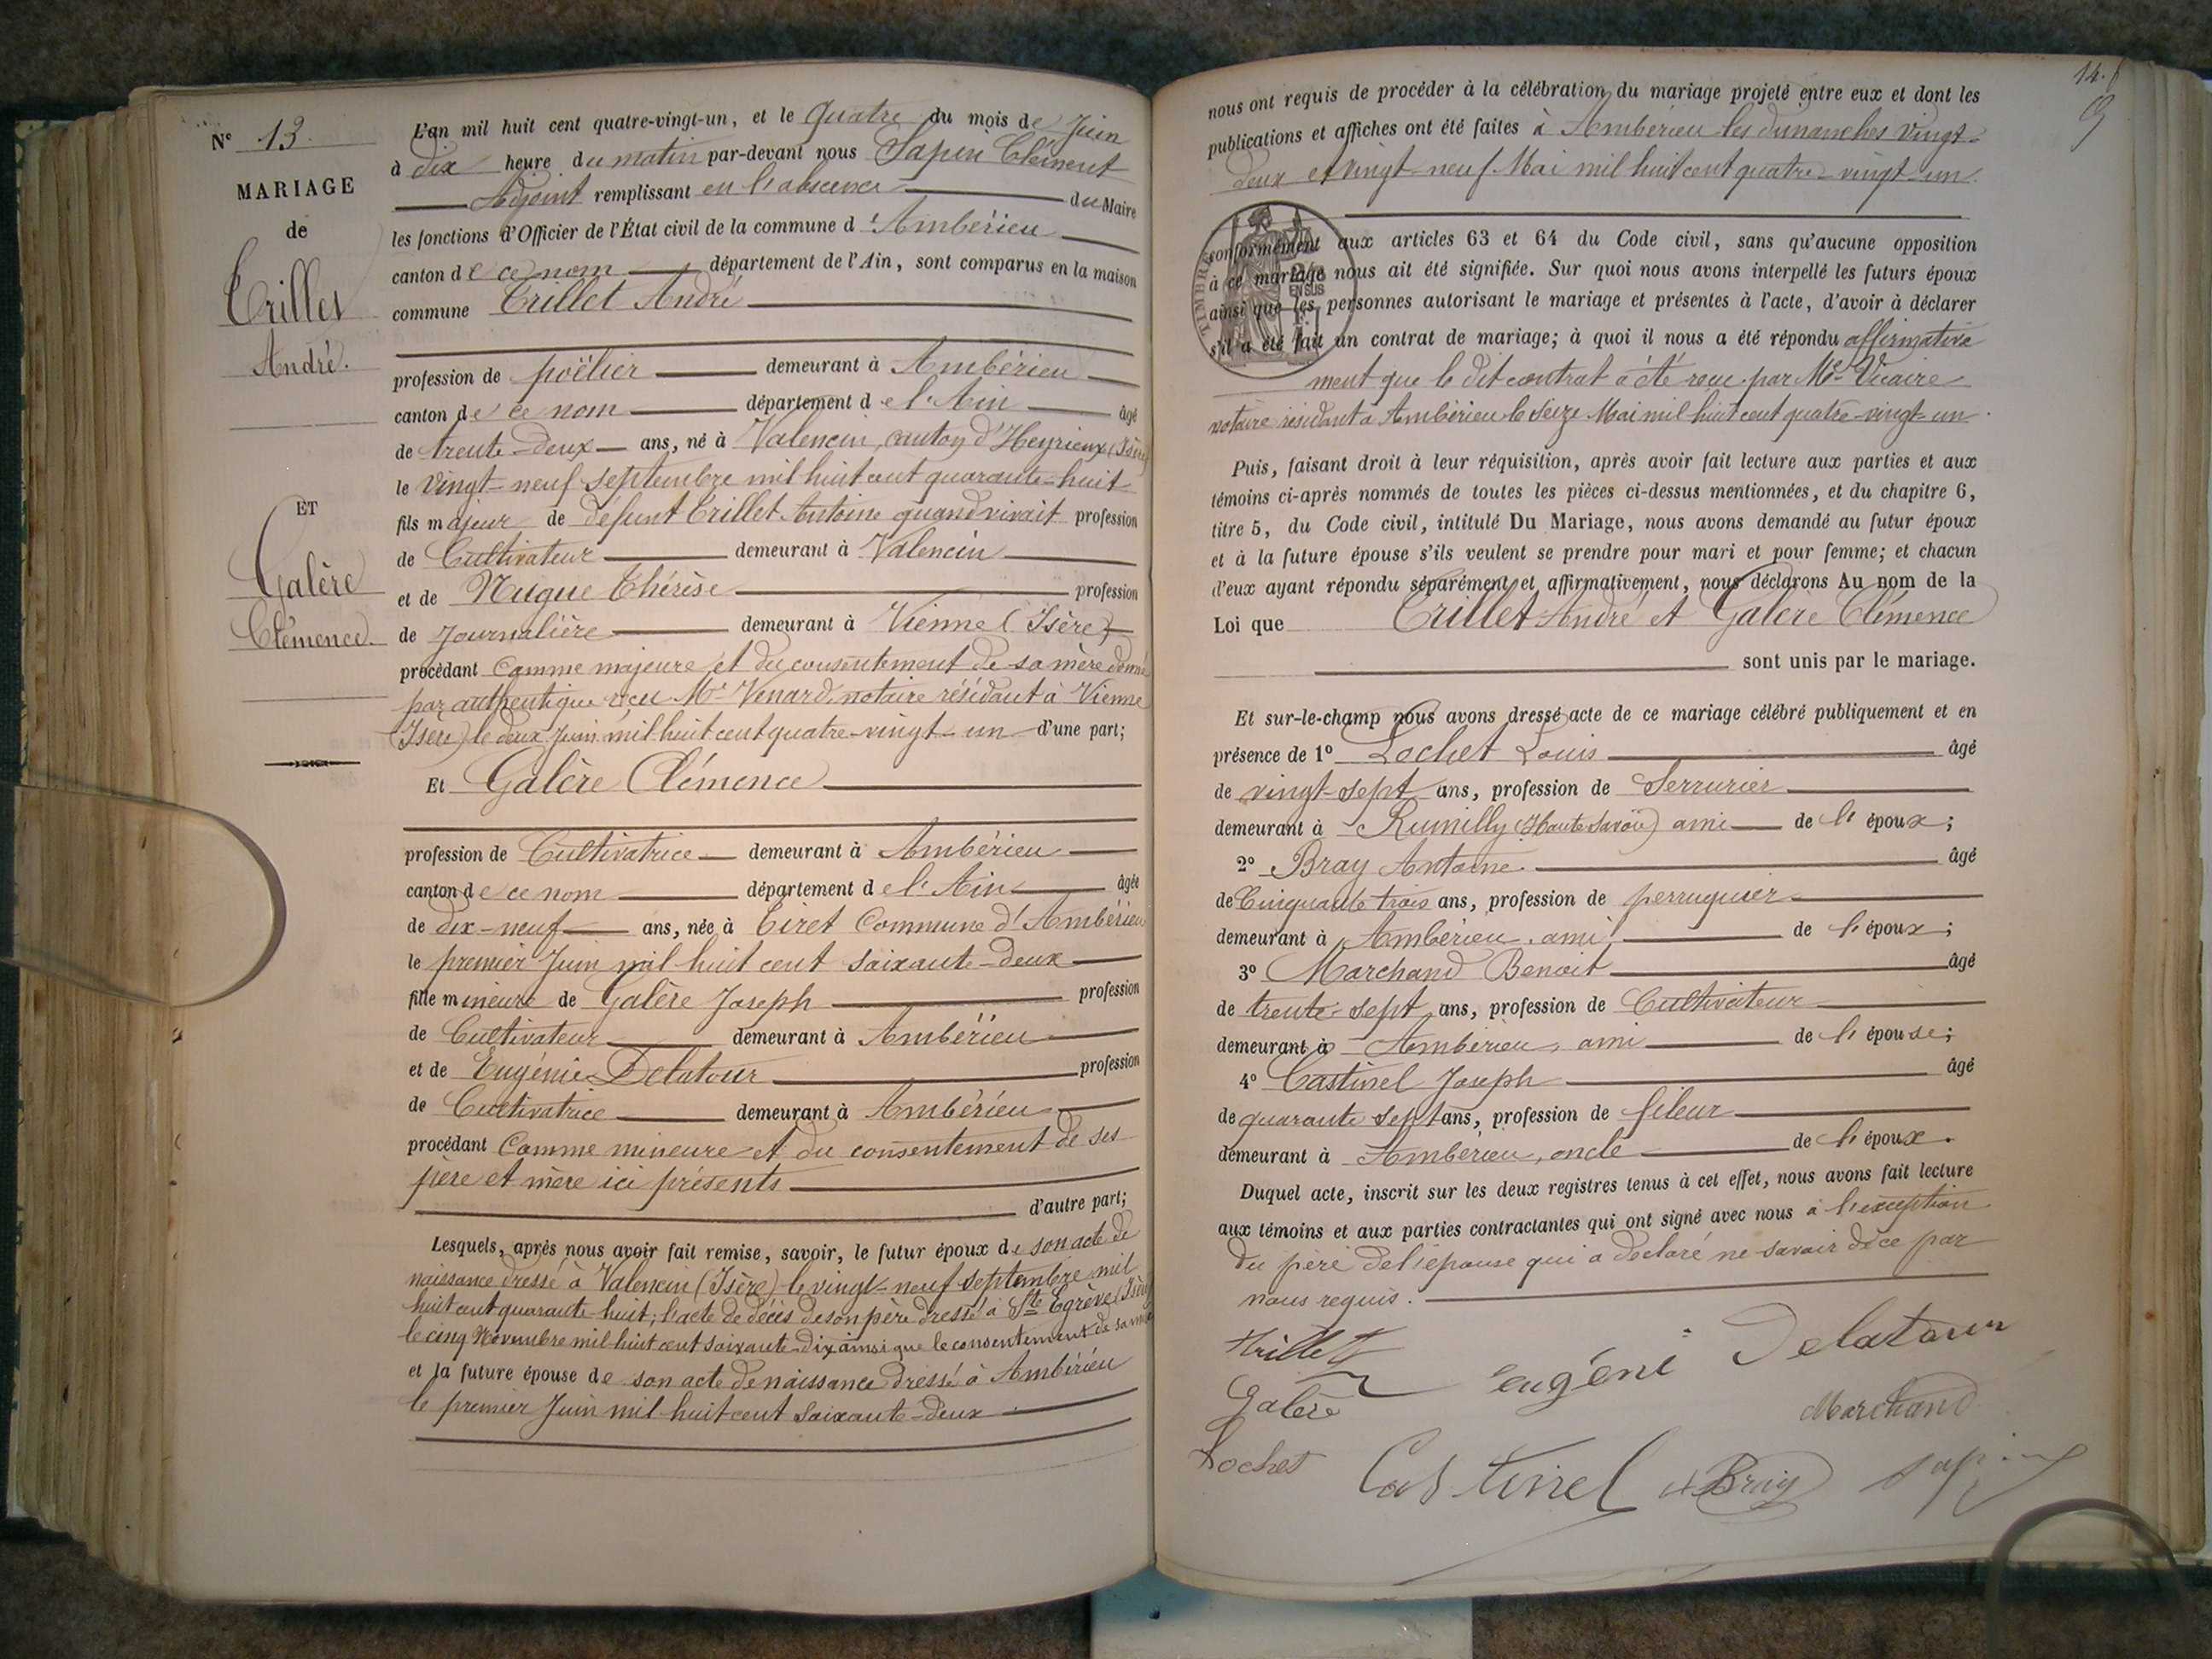 N° 13
MARIAGE
de
Trillet
André.
ET
Galère
Clémence.
L'an mil huit cent quatre-vingt-un, et le quatre du mois de Juin
à dix heure du matin par-devant nous Sapin Clément
Adjoint remplissant en l'absence du Maire
les fonctions d'Officier de l'État civil de la commune d'Ambérieu
canton de ce nom, département de l'Ain, sont comparus en la maison
commune Trillet André
profession de poëlier demeurant à Ambérieu
canton de ce nom département de l'Ain âgé
de trente-deux ans, né à Valencin, canton d'Heyrieux (Isère)
le vingt-neuf septembre mil huit cent quarante-huit
fils majeur de défunt Trillet Antoine quand vivait profession
de Cultivateur demeurant à Valencin
et de Nugue Thérèse profession
de Journalière demeurant à Vienne (Isère)
procédant comme majeure et du consentement de sa mère donné
par authentique reçu Me Venard, notaire résidant à Vienne
(Isère) le deux Juin mil huit cent quatre-vingt-un d'une part;
Et Galère Clémence
profession de Cultivatrice demeurant à Ambérieu
canton de ce nom département de l'Ain âgée
de dix-neuf ans, née à Tiret Commune d'Ambérieu
le premier Juin mil huit cent soixante-deux
fille mineure de Galère Joseph profession
de Cultivateur demeurant à Ambérieu
et de Eugénie Delatour profession
de Cultivatrice demeurant à Ambérieu
procédant comme mineure et du consentement de ses
père et mère ici présents
d'autre part;
Lesquels, après nous avoir fait remise, savoir, le futur époux de son acte de
naissance dressé à Valencin (Isère) le vingt-neuf septembre mil
huit cent quarante huit; l'acte de décès de son père dressé à St Egrève (Isère)
le cinq Novembre mil huit cent soixante-dix ainsi que le consentement de sa mère
et la future épouse de son acte de naissance dressé à Ambérieu
le premier Juin mil huit cent soixante-deux
14.
nous ont requis de procéder à la célébration du mariage projeté entre eux et dont les
publications et affiches ont été faites à Ambérieu les dimanches vingt-
deux et vingt-neuf Mai mil huit cent quatre-vingt-un.
TIMBRE
EN SUS
conformément aux articles 63 et 64 du Code civil, sans qu'aucune opposition
à ce mariage nous ait été signifiée. Sur quoi nous avons interpellé les futurs époux
ainsi que les personnes autorisant le mariage et présentes à l'acte, d'avoir à déclarer
s'il a été fait un contrat de mariage; à quoi il nous a été répondu affirmative
ment que le dit contrat a été reçu par Me Vicaire
notaire résidant à Ambérieu le seize Mai mil huit cent quatre-vingt-un.
Puis, faisant droit à leur réquisition, après avoir fait lecture aux parties et aux
témoins ci-après nommés de toutes les pièces ci-dessus mentionnées, et du chapitre 6,
titre 5, du Code civil, intitulé Du Mariage, nous avons demandé au futur époux
et à la future épouse s'ils veulent se prendre pour mari et pour femme; et chacun
d'eux ayant répondu séparément et affirmativement, nous déclarons Au nom de la
Loi que Trillet André et Galère Clémence
sont unis par le mariage.
Et sur-le-champ nous avons dressé acte de ce mariage célébré publiquement et en
présence de 1° Lochet Louis âgé
de vingt-sept ans, profession de Serrurier
demeurant à Rumilly (Haute Savoie) ami de l'époux;
2° Bray Antoine âgé
de Cinquante trois ans, profession de perruquier
demeurant à Ambérieu, ami de l'époux;
3° Marchand Benoit âgé
de trente-sept ans, profession de Cultivateur
demeurant à Ambérieu, ami de l'épouse;
4° Castinel Joseph âgé
de quarante sept ans, profession de fileur
demeurant à Ambérieu, oncle de l'époux.
Duquel acte, inscrit sur les deux registres tenus à cet effet, nous avons fait lecture
aux témoins et aux parties contractantes qui ont signé avec nous à l'exception
du père de l'épouse qui a déclaré ne savoir de ce par
nous requis.
trillet
eugéni Delatour
Galère
Marchand
Lochet
Castinel
Bray
Sapin